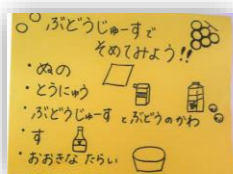 ぶどうじゅーすで
そめてみよう!!
・ぬの
・とうにゅう
・ぶどうじゅーすとぶどうのかわ
・す
・おおきなたらい